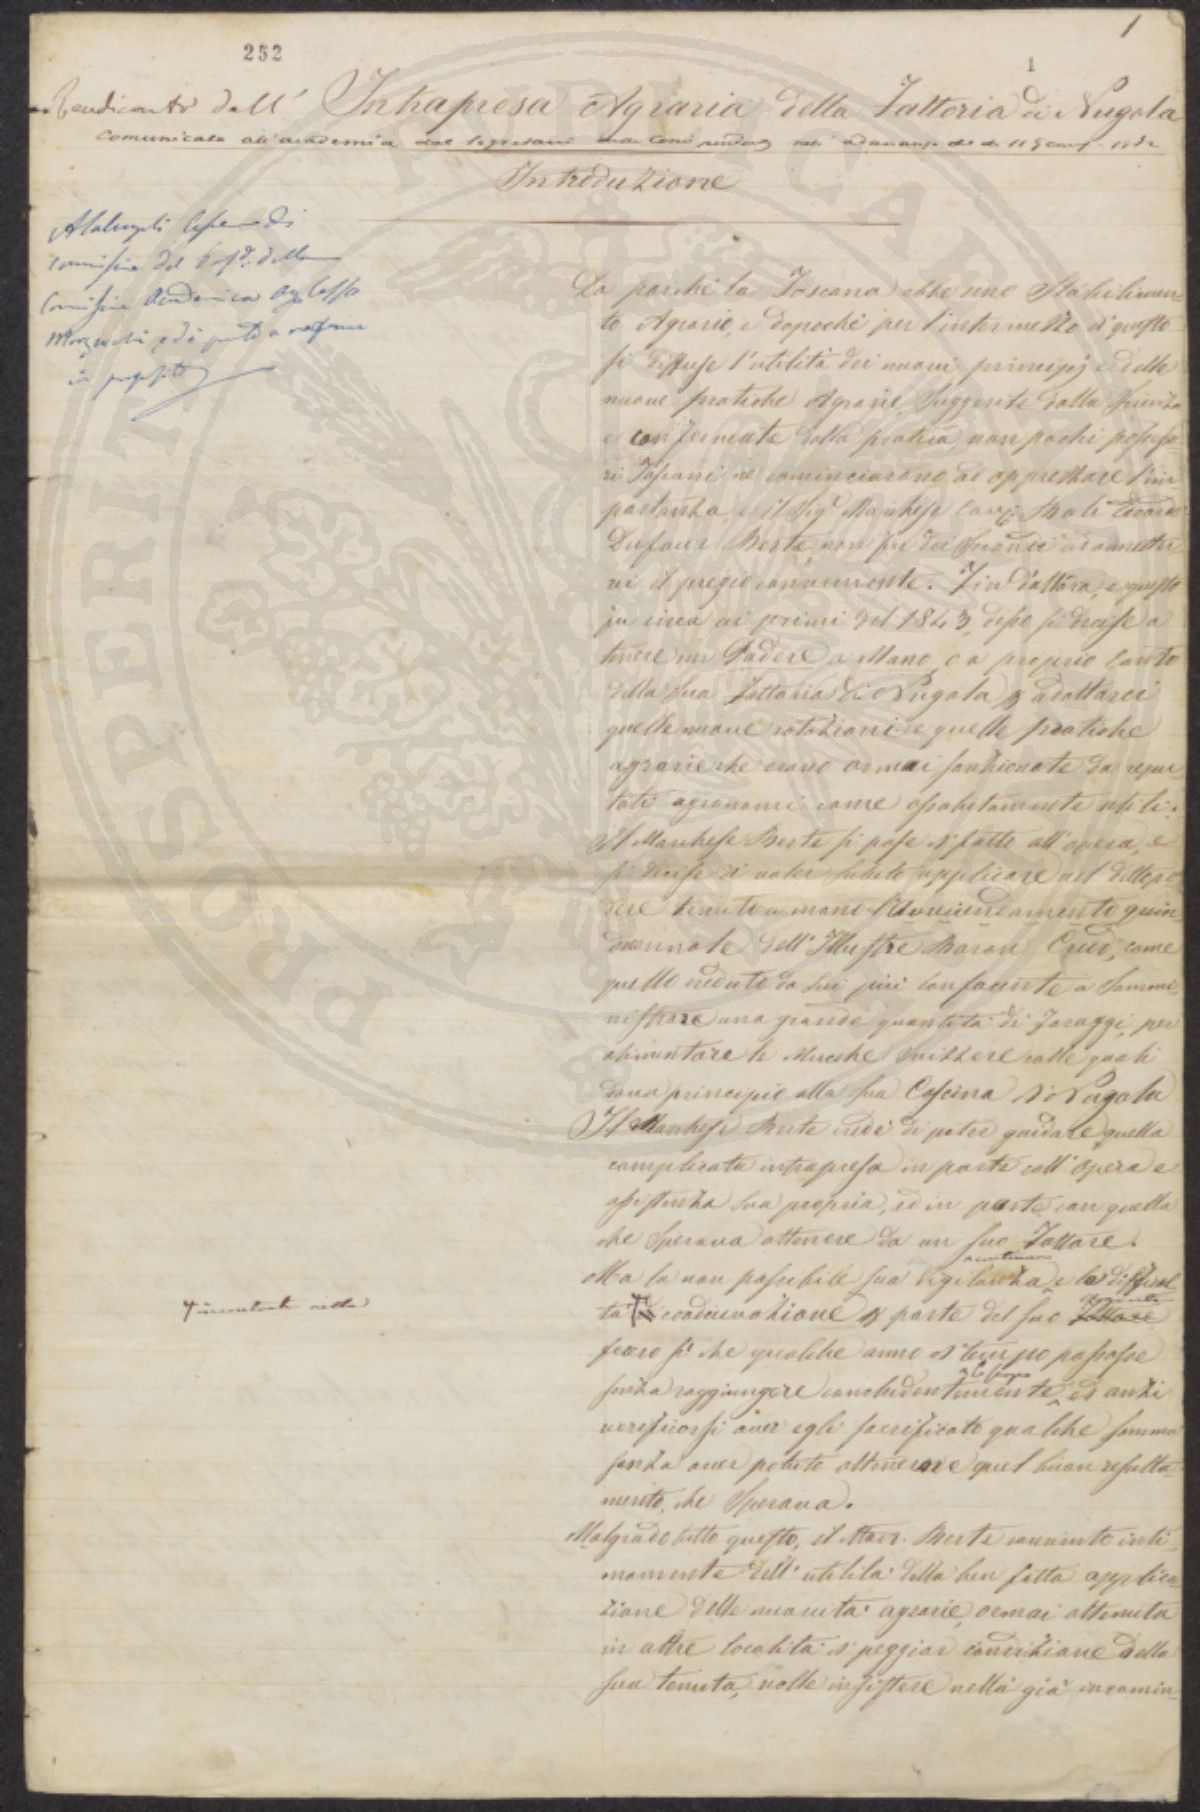 252
1
1
Rendiconto dell' Intrapresa Agraria della Fattoria di Nugola
Comunicato all'accademia dal Segretario nell' adunanza del dì 11
Introduzione
commissione del della
Commissione Accademica
in proposito
Da poichè la Toscana ebbe uno Stabilimen-
to Agrario, e dapochè per l'intermezzo di questo
si diffuse l'utilità dei nuovi principj e delle
nuove pratiche Agrarie, suggerite dalla Scienza
e confermate dalla pratica, non pochi possesso-
ri Toscani ne cominciarono ad apprezzare l'im
portanza, e il Sigr Marchese Cavr
Dufour Berte non fu dei secondi ad ammetter
ne il pregio conveniente. Fin d'allora, e questo
fu circa ai primi del 1843, desso si decise a
tenere un Podere a Mano, o a proprio Conto
della sua Fattoria di Nugola p adottarci
quelle nuove rotazioni e quelle pratiche
agrarie che erano ormai sanzionate da repu
tati agronomi come assolutamente utili.
Il Marchese Berte si pose di fatto all'opera, e
si decise di voler subito applicare nel detto po
dere tenuto a mano l'Avvicendamento quin
dicennale dell'Illustre Baron Crud, come
quello veduto da lui più confacente a sommi-
nistrare una grande quantità di foraggi, per
alimentare le Mucche Svizzere colle quali
dava principio alla sua Cascina di Nugola
Il Marchese Berte credè di poter guidare quella
complicata intrapresa in parte coll'opera e
assistenza sua propria, ed in parte con quella
che sperava ottenere da un suo Fattore.
Ma la non possibile sua vigilanza e la difficol
incontrata nella
tà coadiuvazione p parte del suo Fattore
fecero sì che qualche anno di tempo passasse
senza raggiungere concludentemente, ed anzi
lo scopo
verificossi aver egli sacrificato qualche somma
senza aver potuto ottenere quel buon resulta-
mento, che sperava.
Malgrado tutto questo, il Marc. Berte convinto inti-
mamente dell'utilità della ben fatta applica-
zione delle novità agrarie, ormai ottenuta
in altre località di peggior condizione della
sua tenuta, volle insistere nella già incomin-